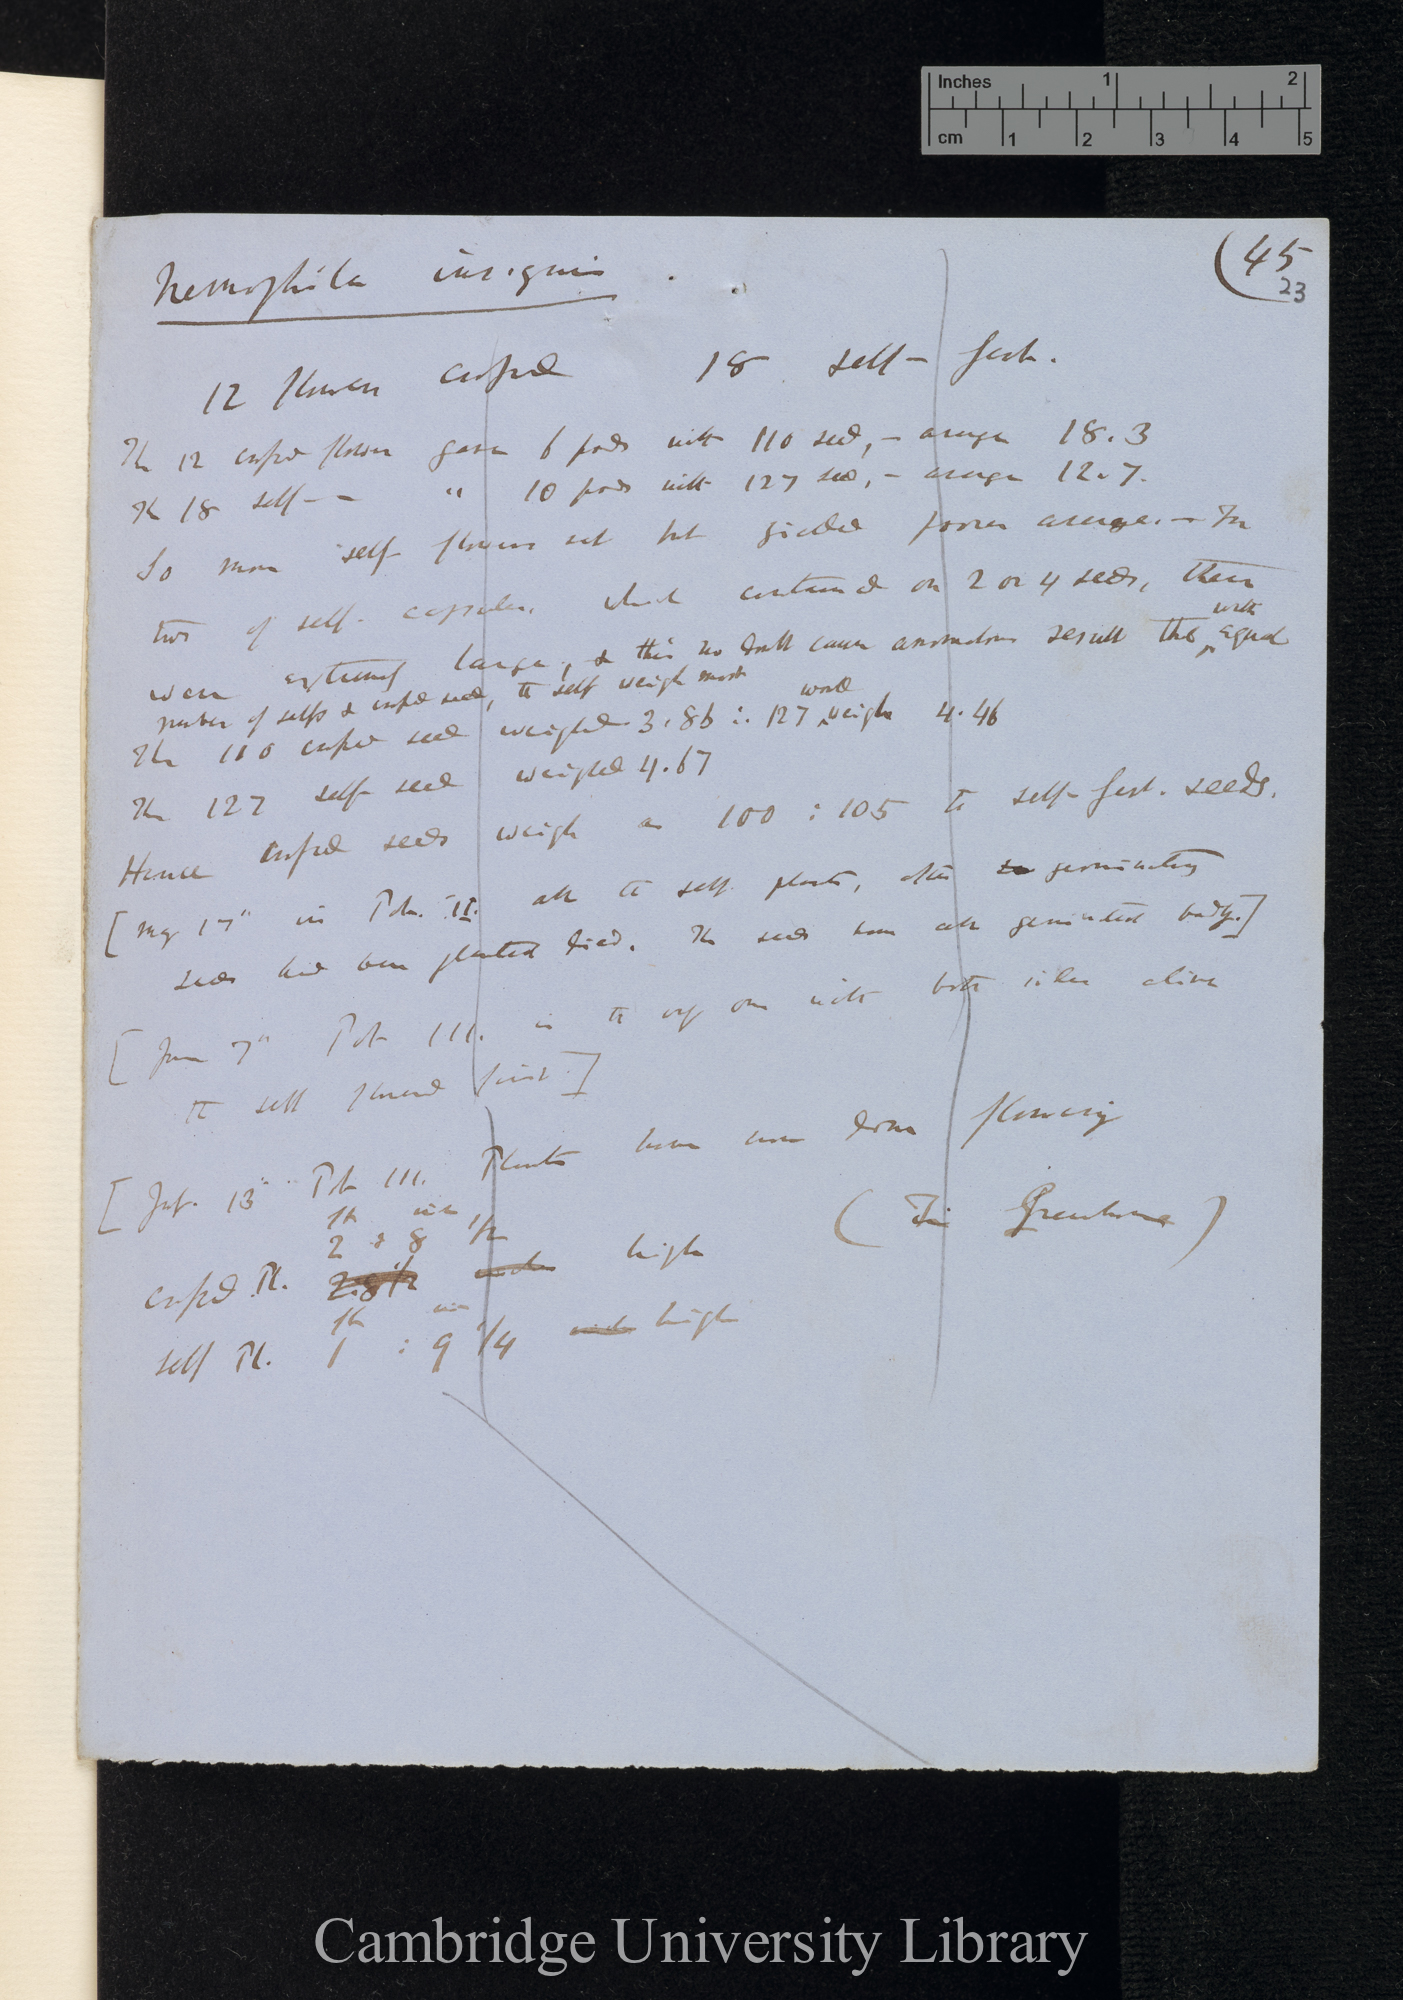 Inches 1 2
cm 1 2 3 4 5
(45
23
Nemophila insignis .
12 flowers crossed 18 self- fert.
The 12 crossed flowers gave 6 pods with 110 seed, — average 18.3
The 18 self- — " 10 pods with 127 seed, — average 12.7.
So more self flowers set but yielded poorer average. — In
two of self- capsules, which contained on 2 or 4 seeds, these
were extremely large, & this no doubt cause anomalous result that with equal
number of selfs & crossed seed, the self weigh most
The 110 crossed seed weighed 3.86 ∴ 127 would weigh 4.46
The 127 self seed weighed 4.67
Hence crossed seeds weigh as 100 : 105 to self-fert. seeds.
[May 17th in Pot. II. all the self plants, after germinating
seeds had been planted died. The seeds have all germinated badly.]
[June 7th Pot III. is the only one with both sides alive
the self flowered first.]
[July. 13th Pot III. Plants have now done flowering
(In Greenhouse)
ft inches
2 : 8 1/2
crossed Pl. 2.8 1/2 inches high
ft in
self Pl. 1 : 9 1/4 inches high
Cambridge University Library